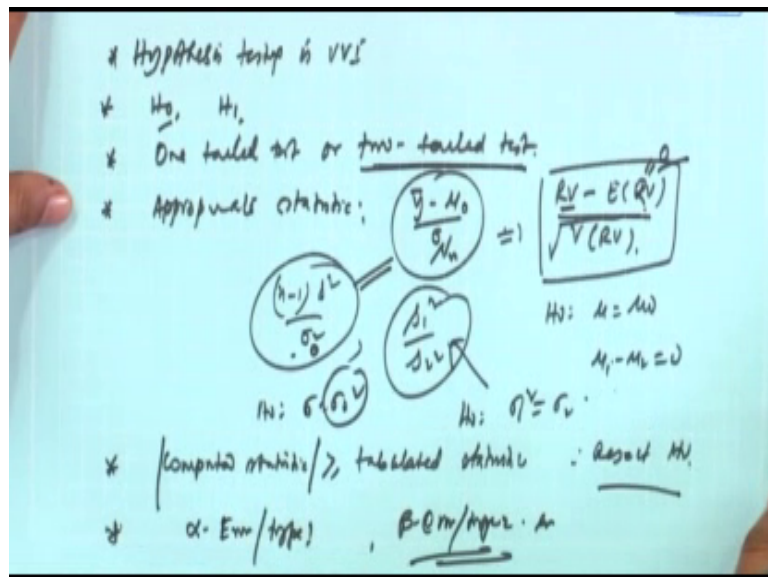 * Hypthesis testing is VVI
* H0, H1.
* One tailed test or two-tailed test.
* Appropriate statistic: ȳ - μ0 / σ/√n => RV - E(RV) / √V(RV).
(n-1) s² / σ0²
s1² / s2²
H0: μ = μ0
μ1 - μ2 = 0
H0: σ = σ0²
H0: σ1² = σ2²
* |Computed statistic| ≥ tabulated statistic ∴ Reject H0.
* α-Err/type1, β-Err/type2.